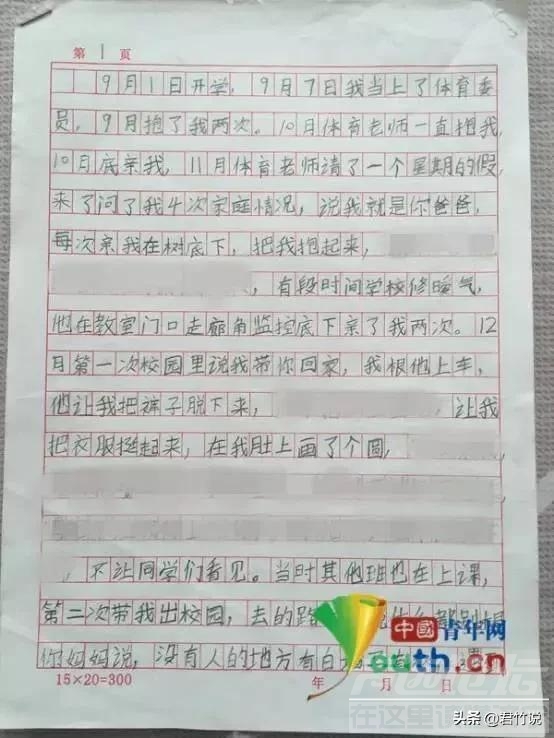 第 1 页
9月1日开学，9月7日我当上了体育委
员，9月抱了我两次。10月体育老师一直抱我，
10月底亲我，11月体育老师请了一个星期的假，
来了问了我4次家庭情况，说我就是你爸爸，
每次亲我在树底下，把我抱起来，
，有段时间学校修暖气，
他在教室门口走廊角监控底下亲了我两次。12
月第一次校园里说我带你回家，我根他上车，
他让我把裤子脱下来，，让我
把衣服挺起来，在我肚上画了个圆，
，不让同学们看见。当时其他班也在上课，
第二次带我出校园，去的路
你妈妈说，没有人的地方有白
中國青年网
Youth.cn
15×20=300 年 月 日
头条 @君竹说